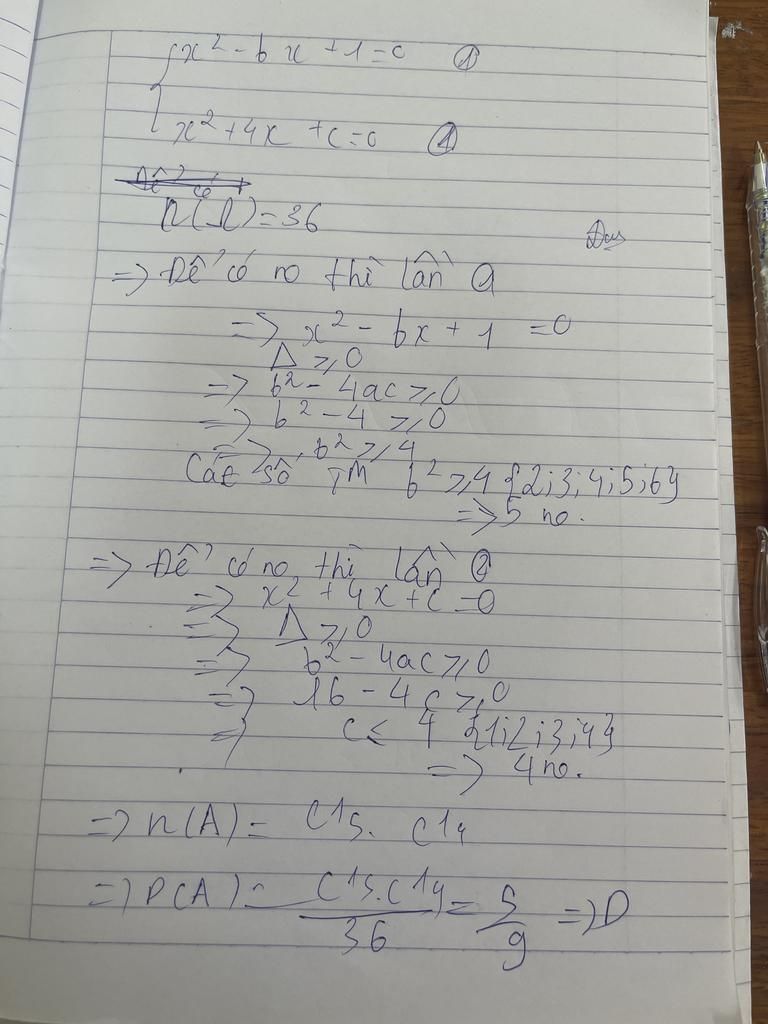 x² - bx + 1 = 0 ①
x² + 4x + c = 0 ①
Để có
n(Ω) = 36
=> Để có no thì lần ①
=> x² - bx + 1 = 0
Δ ⩾ 0
=> b² - 4ac ⩾ 0
=> b² - 4 ⩾ 0
=> b² ⩾ 4
Các số TM b² ⩾ 4 {2;3;4;5;6}
=> 5 no.
=> Để có no thì lần ②
=> x² + 4x + c = 0
=> Δ ⩾ 0
=> b² - 4ac ⩾ 0
=> 16 - 4c ⩾ 0
=> c ⩽ 4 {1;2;3;4}
=> 4 no.
=> n(A) = C15. C14
=> P(A) = C15.C14/36 = 5/9 => D